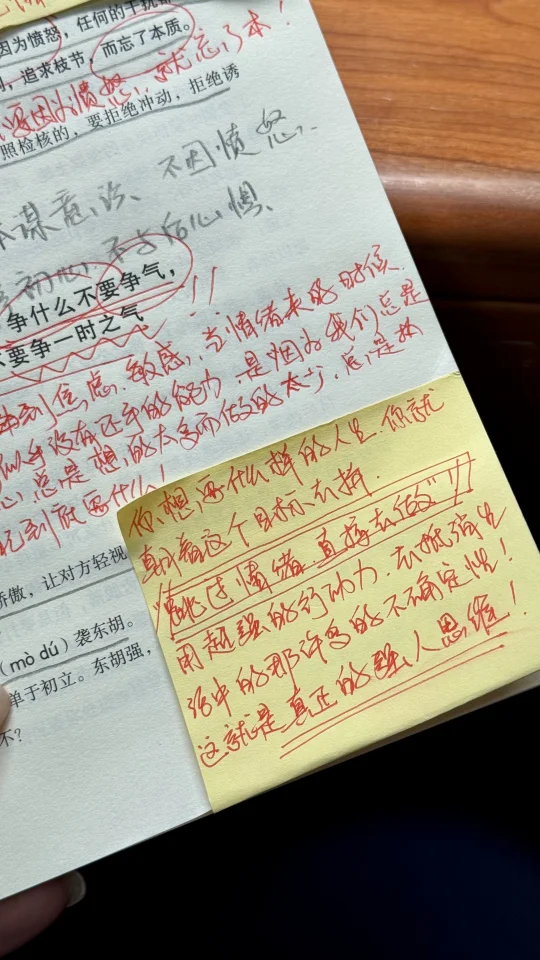 因为愤怒，任何的干扰都
追求枝节，而忘了本质。
要因为愤怒，就忘了本！
照检核的，要拒绝冲动，拒绝诱
谋意识、不因愤怒、
初心，不与后心惧、
争什么不要争气，
要争一时之气
到焦虑、敏感，当情绪来的时候
似乎没有还手的能力，是因为我们总是
心，总是想的太多而做的太少，总是
到底要什么！
你想要什么样的人生，你就
朝着这个目标去拼，
“跳过情绪 直接去做”！！
用超强的行动力，去抵消生
活中的那许多的不确定性！
这就是真正的强人思维！
骄傲，让对方轻视
（mò dú）袭东胡。
单于初立。东胡强，
不？